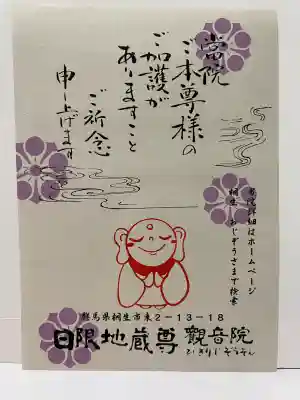 當院
ご本尊様の
ご加護が
ありますこと
ご祈念
申し上げます
寺院詳細はホームページ
桐生 おじぞうさまで検索
群馬県桐生市東2-13-18
日限地蔵尊 觀音院
ひぎりじぞうそん